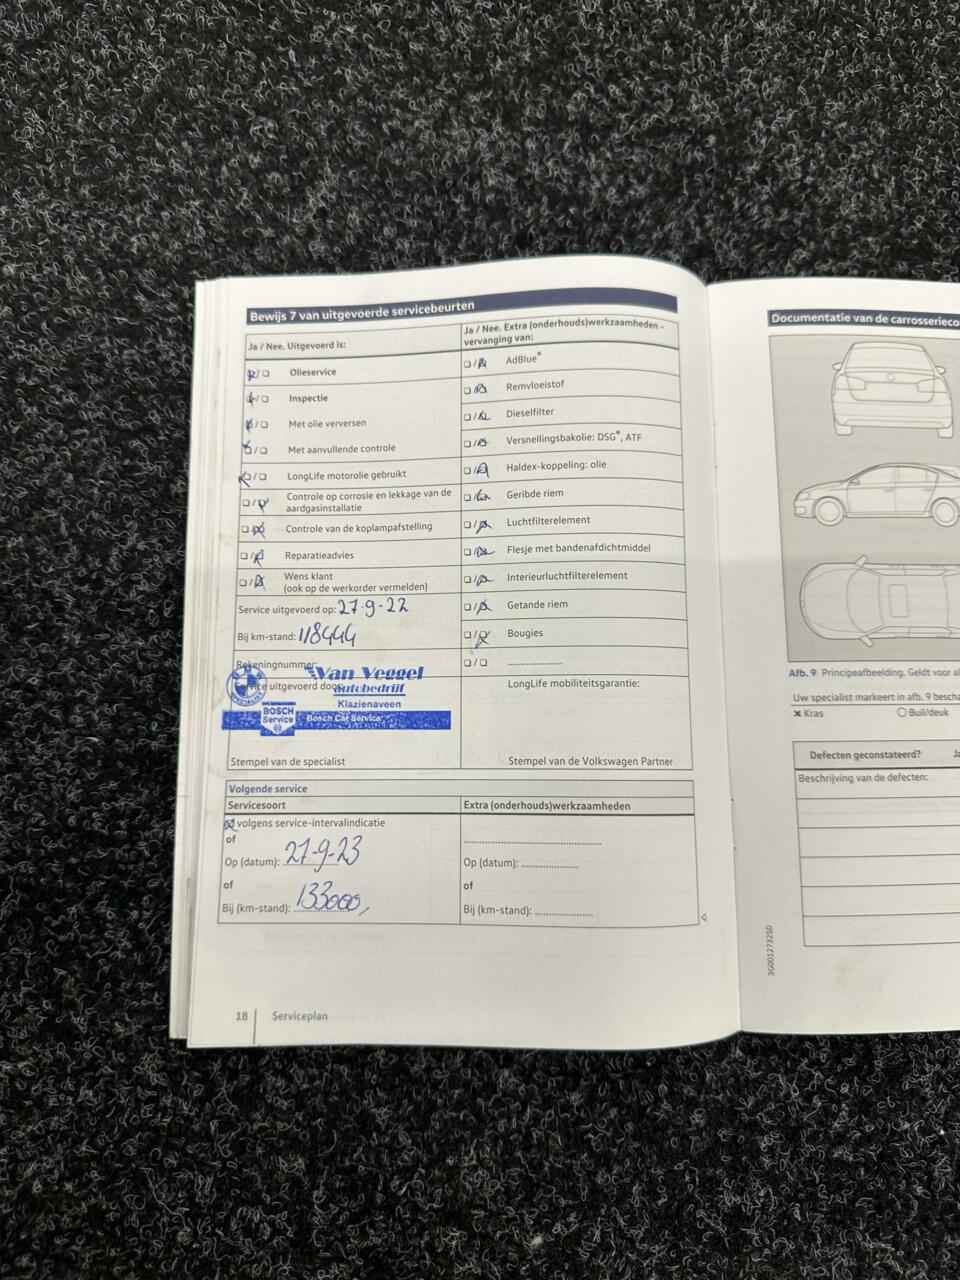 Bewijs 7 van uitgevoerde servicebeurten
Ja / Nee. Uitgevoerd is:
Olieservice
Inspectie
Met olie verversen
Met aanvullende controle
LongLife motorolie gebruikt
Controle op corrosie en lekkage van de
aardgasinstallatie
Controle van de koplampafstelling
Reparatieadvies
Wens klant
(ook op de werkorder vermelden)
Service uitgevoerd op: 27-9-22
Bij km-stand: 118444
Rekeningnummer:
Service uitgevoerd door:
Van Veggel
autobedrijf
Klazienaveen
BOSCH
Service
Bosch Car Service
Stempel van de specialist
Ja / Nee. Extra (onderhouds)werkzaamheden –
vervanging van:
AdBlue®
Remvloeistof
Dieselfilter
Versnellingsbakolie: DSG®, ATF
Haldex-koppeling: olie
Geribde riem
Luchtfilterelement
Flesje met bandenafdichtmiddel
Interieurluchtfilterelement
Getande riem
Bougies
LongLife mobiliteitsgarantie:
Stempel van de Volkswagen Partner
Volgende service
Servicesoort
volgens service-intervalindicatie
of
Op (datum): 27-9-23
of
Bij (km-stand): 133000,
Extra (onderhouds)werkzaamheden
Op (datum):
of
Bij (km-stand):
18 Serviceplan
Documentatie van de carrosserieco
Afb. 9 Principeafbeelding. Geldt voor al
Uw specialist markeert in afb. 9 bescha
Kras
Buil/deuk
Defecten geconstateerd? Ja
Beschrijving van de defecten:
3G0012732SD